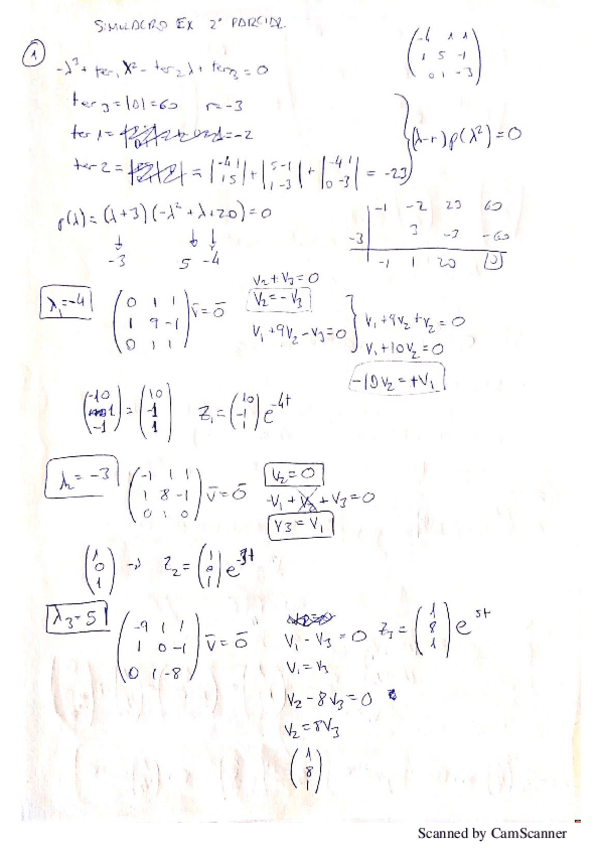 SIMULACRO EX 2º PARCIAL
1
(-4 1 1
1 5 -1
0 1 -3)
-λ³ + ter₁ λ² - ter₂ λ + ter₃ = 0
ter₃ = |0| = 60 r = -3
ter 1 = = -2
ter 2 = = |-4 1 1 5| + |5 -1 1 -3| + |-4 1 0 -3| = -23
(λ-r) p(λ²) = 0
p(λ) = (λ+3)(-λ²+λ+20) = 0
-3 5 -4
-1 -2 23 60
-3 3 -3 -60
-1 1 20 0
λ₁ = -4
(0 1 1
1 9 -1
0 1 1) v̄ = 0̄
V₂ + V₃ = 0
V₂ = -V₃
V₁ + 9V₂ - V₃ = 0
V₁ + 9V₂ + V₂ = 0
V₁ + 10V₂ = 0
-10V₂ = +V₁
(-10 1 -1) = (10 -1 1) Z₁ = (10 -1 1) e^-4t
λ₂ = -3
(-1 1 1
1 8 -1
0 1 0) v̄ = 0̄
V₂ = 0
-V₁ + V₂ + V₃ = 0
V3 = V₁
(1 0 1) → Z₂ = (1 0 1) e^-3t
λ₃ = 5
(-9 1 1
1 0 -1
0 1 -8) v̄ = 0̄
V₁ - V₃ = 0 Z₃ = (1 8 1) e^5t
V₁ = V₃
V₂ - 8V₃ = 0
V₂ = 8V₃
(1 8 1)
Scanned by CamScanner